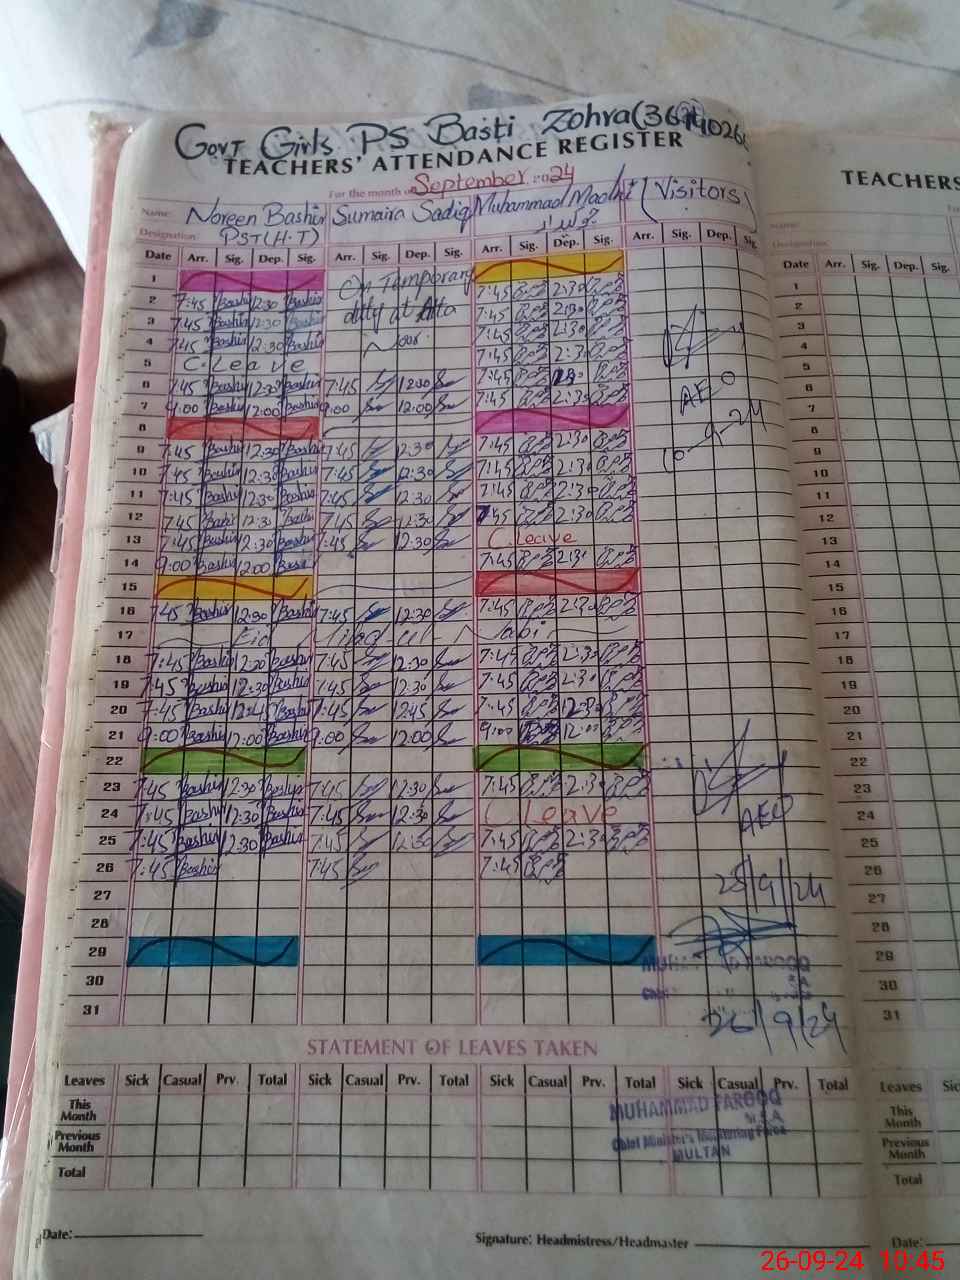 Govt Girls PS Basti Zohra
TEACHERS' ATTENDANCE REGISTER
For the month of September 2024
Name: Noreen Bashir Sumaira Sadiq Muhammad (Visitors)
Designation: PST(H.T) چوکیدار
Date Arr. Sig. Dep. Sig. Arr. Sig. Dep. Sig. Arr. Sig. Dep. Sig. Arr. Sig. Dep. Sig.
1 On Temporary
2 7:45 Bashir 12:30 Bashir duty at 7:45 2:30
3 7:45 Bashir 12:30 Bashir 7:45 2:30
4 7:45 Bashir 12:30 Bashir 7:45 2:30
5 C.Leave 7:45 2:30
6 7:45 Bashir 12:30 Bashir 7:45 12:30 7:45
7 9:00 Bashir 12:00 Bashir 9:00 12:00 7:45 2:30 AEO
8 10-9-24
9 7:45 Bashir 12:30 Bashir 7:45 12:30 7:45 2:30
10 7:45 Bashir 12:30 Bashir 7:45 12:30 7:45 2:30
11 7:45 Bashir 12:30 Bashir 7:45 12:30 7:45 2:30
12 7:45 Bashir 12:30 Bashir 7:45 12:30 7:45 2:30
13 7:45 Bashir 12:30 Bashir 7:45 12:30 C.Leave
14 9:00 Bashir 12:00 Bashir 7:45 2:30
15
16 7:45 Bashir 12:30 Bashir 7:45 12:30 7:45 2:30
17 Eid Milad ul-Nabi
18 7:45 Bashir 12:30 Bashir 7:45 12:30 7:45 2:30
19 7:45 Bashir 12:30 Bashir 7:45 12:30 7:45 2:30
20 7:45 Bashir 12:45 Bashir 7:45 12:45 7:45
21 9:00 Bashir 12:00 Bashir 9:00 12:00 9:00 12:00
22
23 7:45 Bashir 12:30 Bashir 7:45 12:30 7:45 2:30
24 7:45 Bashir 12:30 Bashir 7:45 12:30 C Leave AEO
25 7:45 Bashir 12:30 Bashir 7:45 12:30 7:45 2:30
26 7:45 Bashir 7:45 7:45
27 25/9/24
28
29 MUHAMMAD FAROOQ
30
31 26/9/24
STATEMENT OF LEAVES TAKEN
Leaves Sick Casual Prv. Total Sick Casual Prv. Total Sick Casual Prv. Total Sick Casual Prv. Total
This Month MUHAMMAD FAROOQ
M.E.A
Previous Month Chief Minister's Monitoring Force
MULTAN
Total
Date: Signature: Headmistress/Headmaster
TEACHERS
Name:
Designation:
Date Arr. Sig. Dep. Sig.
1
2
3
4
5
6
7
8
9
10
11
12
13
14
15
16
17
18
19
20
21
22
23
24
25
26
27
28
29
30
31
Leaves
This Month
Previous Month
Total
Date:
26-09-24 10:45